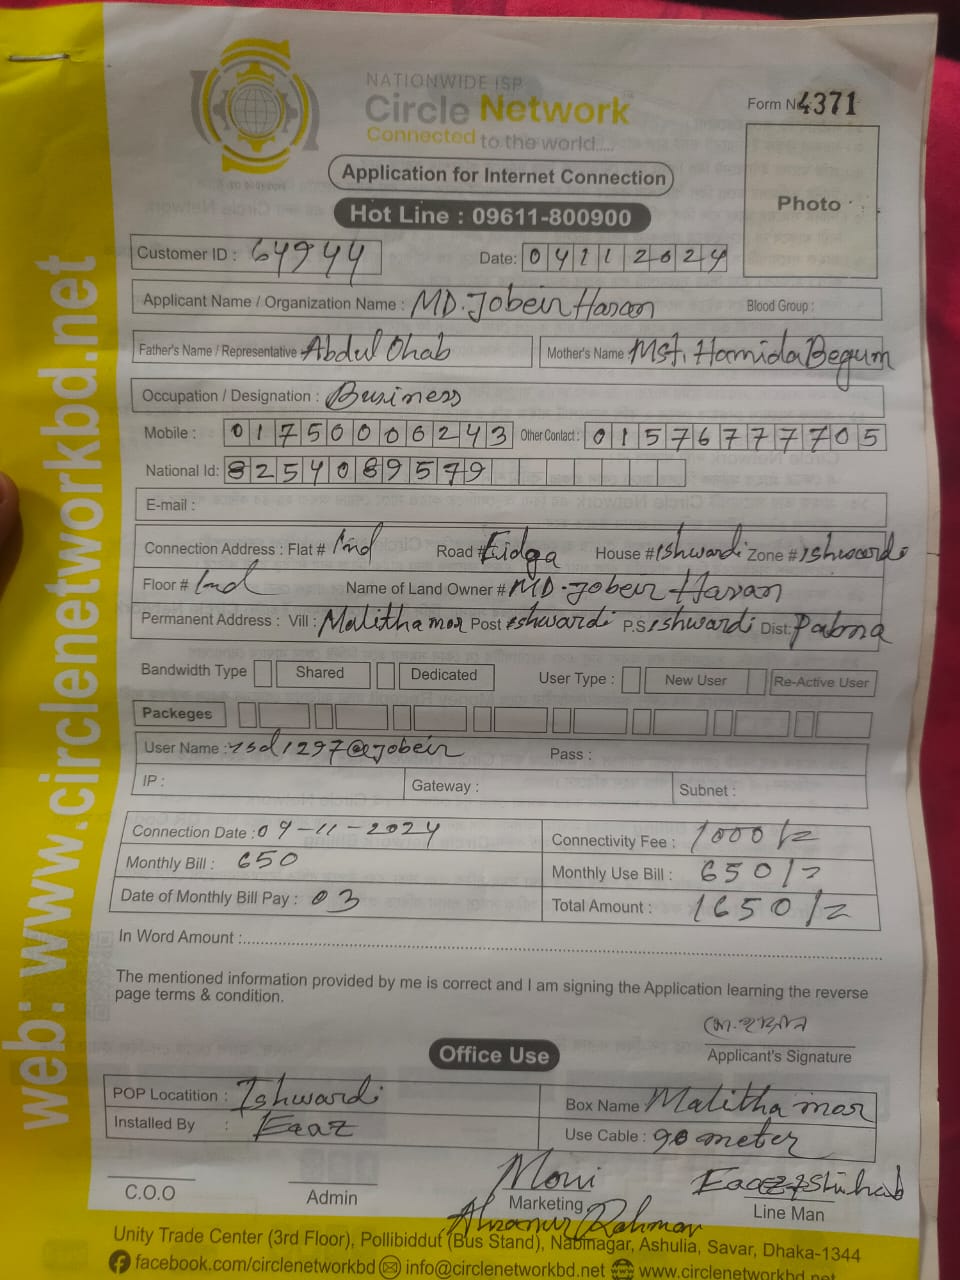 NATIONWIDE ISP
Circle Network
Connected to the world.....
Form No 4371
Application for Internet Connection
Photo
Hot Line : 09611-800900
Customer ID : 64944
Date: 04112024
Applicant Name / Organization Name : MD. Jobeir Hasan Blood Group :
Father's Name / Representative Abdul Ohab Mother's Name Mst. Hamida Begum
Occupation / Designation : Business
Mobile : 01750006243 Other Contact : 01576777705
National Id: 8254089579
E-mail :
Connection Address : Flat # Road # Eidga House # Ishwardi Zone # Ishwardi
Floor # Name of Land Owner # MD. Jobeir Hasan
Permanent Address : Vill : Malitha mor Post Ishwardi P.S Ishwardi Dist: Pabna
Bandwidth Type Shared Dedicated User Type : New User Re-Active User
Packeges
User Name : isd1297@jobeir Pass :
IP : Gateway : Subnet :
Connection Date : 04-11-2024 Connectivity Fee : 1000/=
Monthly Bill : 650 Monthly Use Bill : 650/=
Date of Monthly Bill Pay : 03 Total Amount : 1650/=
In Word Amount :
The mentioned information provided by me is correct and I am signing the Application learning the reverse
page terms & condition.
মো. হাসান
Applicant's Signature
Office Use
POP Locatition : Ishwardi Box Name Malitha mor
Installed By : Eaaz Use Cable : 90 meter
C.O.O Admin Moni Marketing Line Man
Rahman
Unity Trade Center (3rd Floor), Pollibiddut (Bus Stand), Nabinagar, Ashulia, Savar, Dhaka-1344
facebook.com/circlenetworkbd info@circlenetworkbd.net www.circlenetworkbd.net
web: www.circlenetworkbd.net